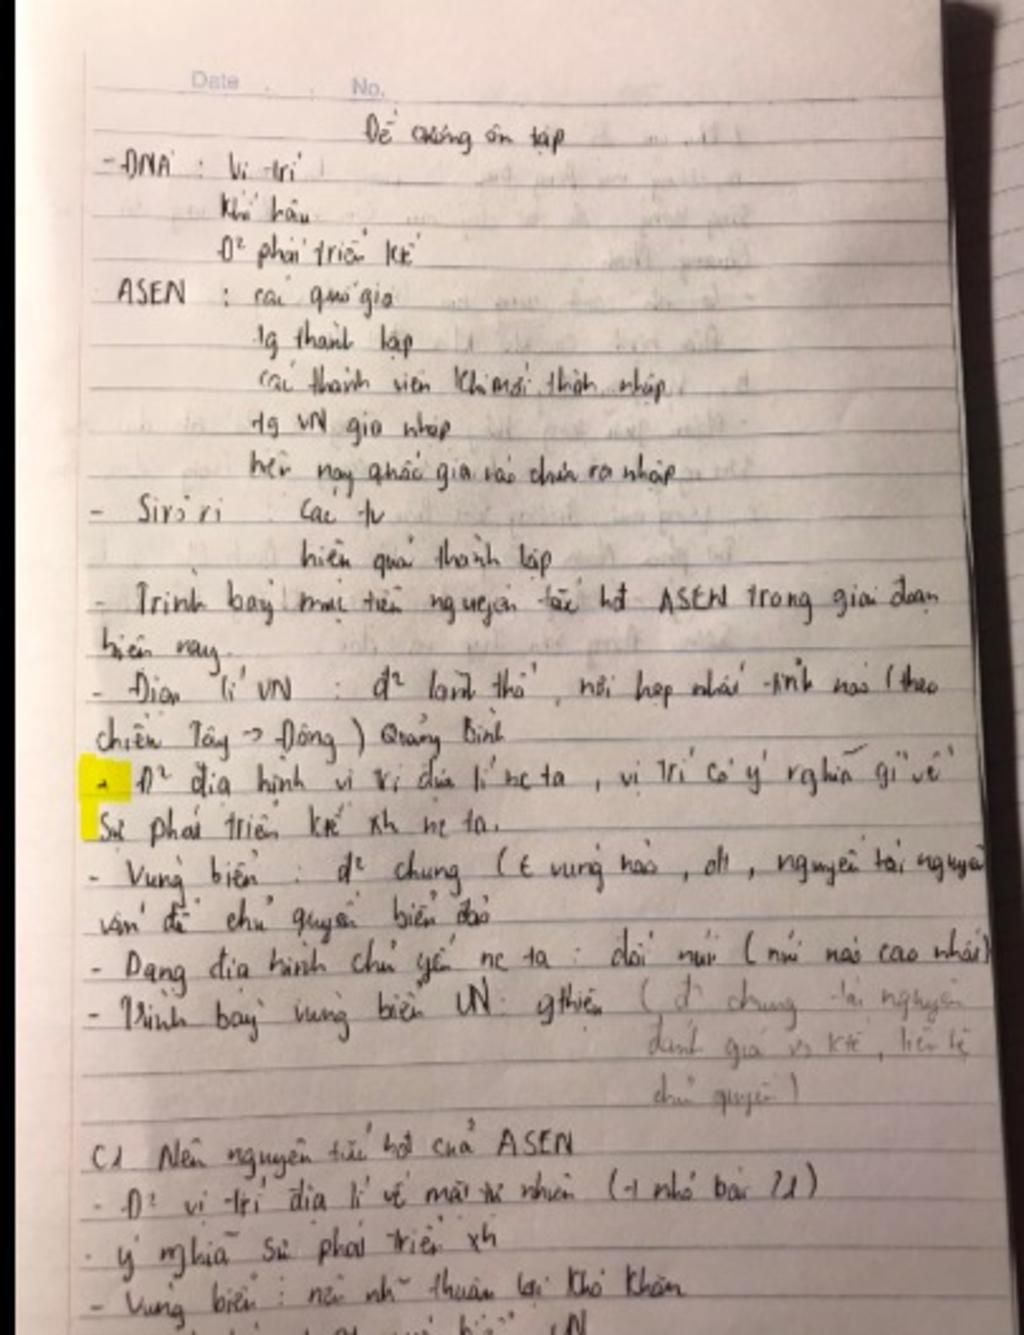 Date No.
Đề cương ôn tập
- ĐNA : Vị trí
Khí hậu
Đ² phát triển KTế
ASEN : các quố gia
tg thành lập
các thành viên khi mới thành nhập
tg VN gia nhập
hiện nay quốc gia nào chưa ra nhập
- các tv
hiện quả thành lập
- Trình bày mục tiêu nguyên tắc hđ ASEN trong giai đoạn
hiện nay.
- Địa lí VN : đ² lãnh thổ, nơi hẹp nhất tỉnh nào (theo
chiều Tây -> Đông) Quảng Bình
- Đ² địa hình vị trí địa lí nc ta, vị trí có ý nghĩa gì về
sự phát triển ktế xh nc ta.
- Vùng biển : đ² chung (t vùng nào, , nguyên tài nguyên
vấn đề chủ quyền biển đảo
- Dạng địa hình chủ yếu nc ta : đồi núi (núi nào cao nhất)
- Trình bày vùng biển VN (đ² chung tài nguyên
đánh giá ktế, liên hệ
chủ quyền)
C1 Nêu nguyên tắc hđ của ASEN
- Đ² vị trí địa lí về mặt tự nhiên ( nhớ bài )
- ý nghĩa sự phát triển xh
- Vùng biển : nêu nh~ thuận lợi khó khăn
VN